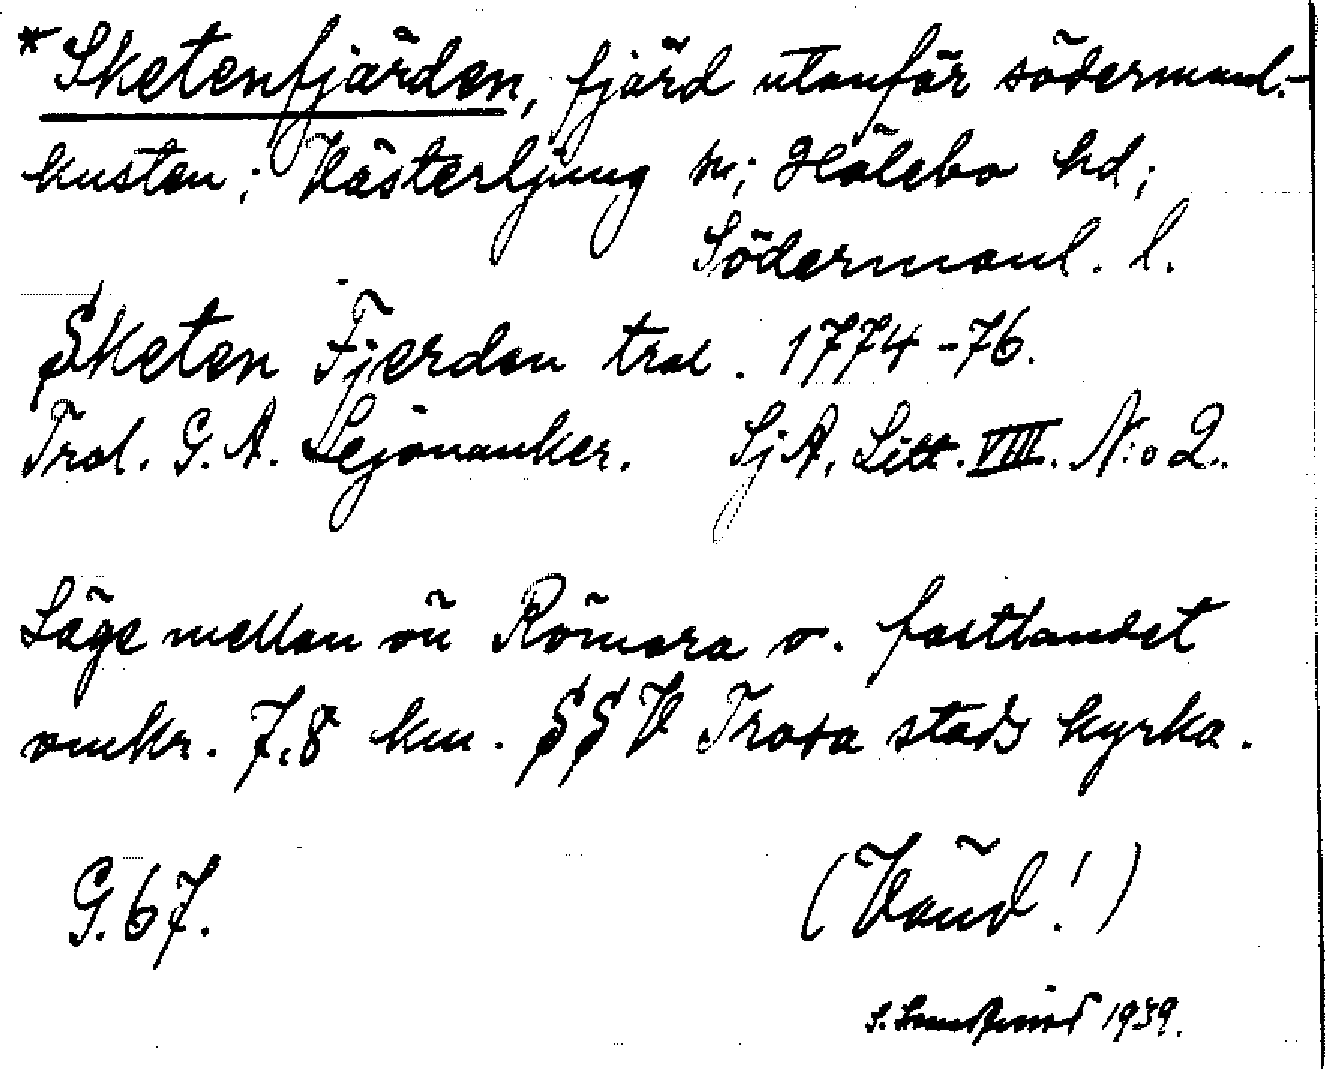 *Sketenfjärden, fjärd utanför södermanl.-
kusten; Västerljung sn; Hölebo hd;
Södermanl. l.
Sketen Fjerden trol. 1774-76.
Trol. G. A. Lejonanker. SjA, Litt. VIII. N:o 2.
Läge mellan ön Römora o. fastlandet
omkr. 7,8 km. SSV Trosa stads kyrka.
G. 67.
(Vänd!)
S. 1939.